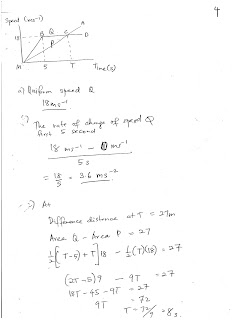 4
Speed (ms⁻¹)
A
18
B Q C D
P
M 5 T Time(s)
a) Uniform speed Q
18 ms⁻¹
The rate of change of speed Q
first 5 second
18 ms⁻¹ − 0 ms⁻¹
5s
= 18/5 = 3.6 ms⁻²
c) At
Difference distance at T = 27m
Area Q − Area P = 27
½[(T−5)+T]18 − ½(T)(18) = 27
(2T−5)9 − 9T = 27
18T − 45 − 9T = 27
9T = 72
T = 72/9 = 8s